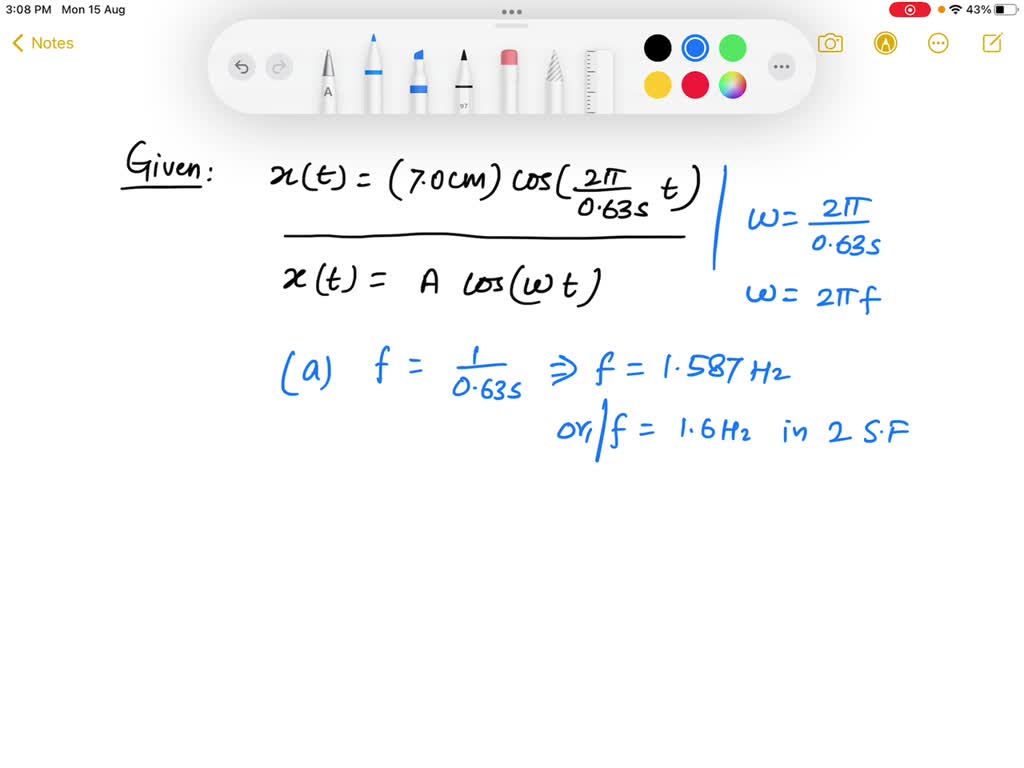 3:08 PM Mon 15 Aug
43%
Notes
A
97
Given: x(t) = (7.0cm) cos(2π/0.63s t)
x(t) = A cos(ωt)
ω = 2π/0.63s
ω = 2πf
(a) f = 1/0.63s ⇒ f = 1.587 Hz
or, f = 1.6 Hz in 2 S.F